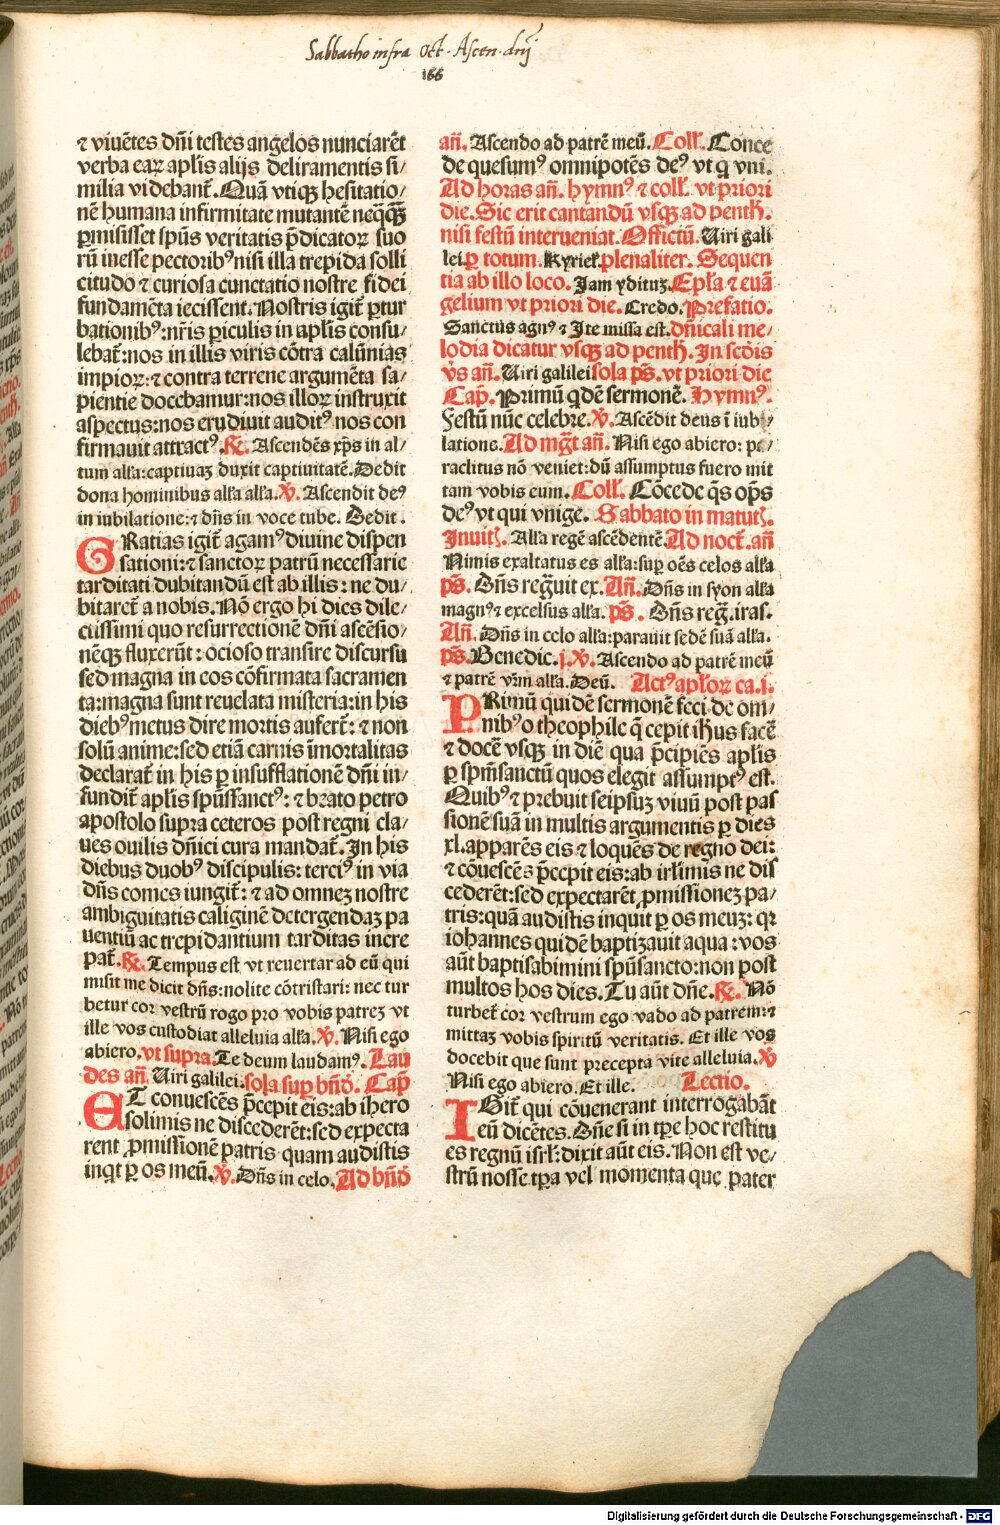 Sabbatho infra Oct. Ascen. dnj
166
⁊ viuētes dñi testes angelos nunciarēt
verba eaꝝ apl'is alijs deliramentis si/
milia videbant̄. Quā vtiqꝫ hesitatio/
nē humana infirmitate mutantē neq̄q̄ꝫ
ꝑmisisset spūs veritatis p̄dicatoꝝ suo
rū inesse pectoribꝰ nisi illa trepida solli
citudo ⁊ curiosa cunctatio nostre fidei
fundamēta iecissent. Nostris igit̄ ꝑtur
bationibꝰ: nr̄is ꝑiculis in aplīs consu/
lebat̄: nos in illis viris cōtra calūnias
impioꝝ: ⁊ contra terrene argumēta sa/
pientie docebamur: nos illoꝝ instruxit
aspectus: nos erudiuit auditꝰ nos con
firmauit attractꝰ. R̄. Ascendēs xp̄s in al/
tum all'a: captiuaꝫ duxit captiuitatē. Dedit
dona hominibus all'a all'a. V̄. Ascendit deꝰ
in iubilatione: ⁊ dn̄s in voce tube. Dedit.
GRatias igit̄ agamꝰ diuine dispen
sationi: ⁊ sanctoꝝ patrū necessarie
tarditati dubitandū est ab illis: ne du/
bitaret̄ a nobis. Nō ergo hi dies dile/
ctissimi quo resurrectionē dñi ascēsio/
nēqꝫ fluxerūt: ocioso transire discursu
sed magna in eos cōfirmata sacramen
ta: magna sunt reuelata misteria: in his
diebꝰ metus dire mortis aufert̄: ⁊ non
solū anime: sed etiā carnis īmortalitas
declarat̄ in his ꝑ insufflationē dñi in/
fundit̄ aplīs spūssanctꝰ: ⁊ beato petro
apostolo supra ceteros post regni cla/
ues ouilis dñici cura mandat̄. In his
diebus duobꝰ discipulis: terciꝰ in via
dn̄s comes iungit̄: ⁊ ad omneꝫ nostre
ambiguitatis caliginē detergendaꝫ pa
uentiū ac trepidantium tarditas incre
pat̄. R̄. Tempus est vt reuertar ad eū qui
misit me dicit dn̄s: nolite cōtristari: nec tur
betur cor vestrū rogo pro vobis patreꝫ vt
ille vos custodiat alleluia all'a. V̄. Nisi ego
abiero. vt supra. Te deum laudamꝰ. Lau
des an̄. Uiri galilei. sola suꝑ bn̄d̄. Cap̄
ET conuescēs p̄cepit eis: ab ihero
solimis ne discederēt: sed expecta
rent ꝓmissionē patris quam audistis
inqt ꝑ os meū. V̄. Dn̄s in celo. Ad bn̄d̄
an̄. Ascendo ad patrē meū. Coll'. Conce
de quesumꝰ omnipotēs deꝰ vt q̄ vni.
Ad horas an̄. hymnꝰ ⁊ coll'. vt priori
die. Sic erit cantandū vsqꝫ ad penth̄.
nisi festū interueniat. Officiū. Uiri gali
lei. ꝑ totum. Kyriel'. plenaliter. Sequen
tia ab illo loco. Jam ꝓdituꝫ. Epl'a ⁊ euā
gelium vt priori die. Credo. Prefatio.
Sanctus agnꝰ ⁊ Ite missa est. dn̄icali me/
lodia dicatur vsqꝫ ad penth̄. In scd̄is
v̄s an̄. Uiri galilei sola ps̄. vt priori die
Cap̄. Primū q̄dē sermonē. Hymnꝰ.
Festū nūc celebre. V̄. Ascēdit deus ī iub/
latione. Ad mg̅t an̄. Nisi ego abiero: pa/
raclitus nō veniet: dū assumptus fuero mit
tam vobis eum. Coll'. Cōcede q̄s op̄s
deꝰ vt qui vnige. Sabbato in matuƭ.
Inuiƭ. All'a regē ascēdentē Ad noct̄. an̄
Nimis exaltatus es all'a: suꝑ oēs celos all'a
ps̄. Dn̄s reg̅uit ex. An̄. Dn̄s in syon all'a
magnꝰ ⁊ excelsus all'a. ps̄. Dn̄s reg̅. iras.
An̄. Dn̄s in celo all'a: parauit sedē suā all'a.
ps̄. Benedic. j. V̄. Ascendo ad patrē meū
⁊ patrē vr̄m all'a. Deū. Actꝰ apl'oꝝ ca. i.
PRimū quidē sermonē feci de om/
nibꝰ o theophile q̄ cepit ihūs facē
⁊ docē vsqꝫ in diē qua p̄cipiēs aplīs
ꝑ spm̄sanctū quos elegit assumptꝰ est.
Quibꝰ ⁊ prebuit seipsuꝫ viuū post pas
sionē suā in multis argumentis ꝑ dies
xl. apparēs eis ⁊ loquēs de regno dei:
⁊ cōuescēs p̄cepit eis: ab irl'imis ne dis
cederēt: sed expectarēt ꝓmissioneꝫ pa/
tris: quā audistis inquit ꝑ os meuꝫ: qꝛ
iohannes quidē baptizauit aqua: vos
aūt baptisabimini spūsancto: non post
multos hos dies. Tu aūt dn̄e. R̄. Nō
turbet̄ cor vestrum ego vado ad patrem ⁊
mittaꝫ vobis spiritū veritatis. Et ille vos
docebit que sunt precepta vite alleluia. V̄
Nisi ego abiero. Et ille. Lectio.
IGit̄ qui cōuenerant interrogabāt
eū dicētes. Dn̄e si in tp̄e hoc restitu
es regnū isrl': dixit aūt eis. Non est ve/
strū nosse tp̄a vel momenta que pater
Digitalisierung gefördert durch die Deutsche Forschungsgemeinschaft - DFG